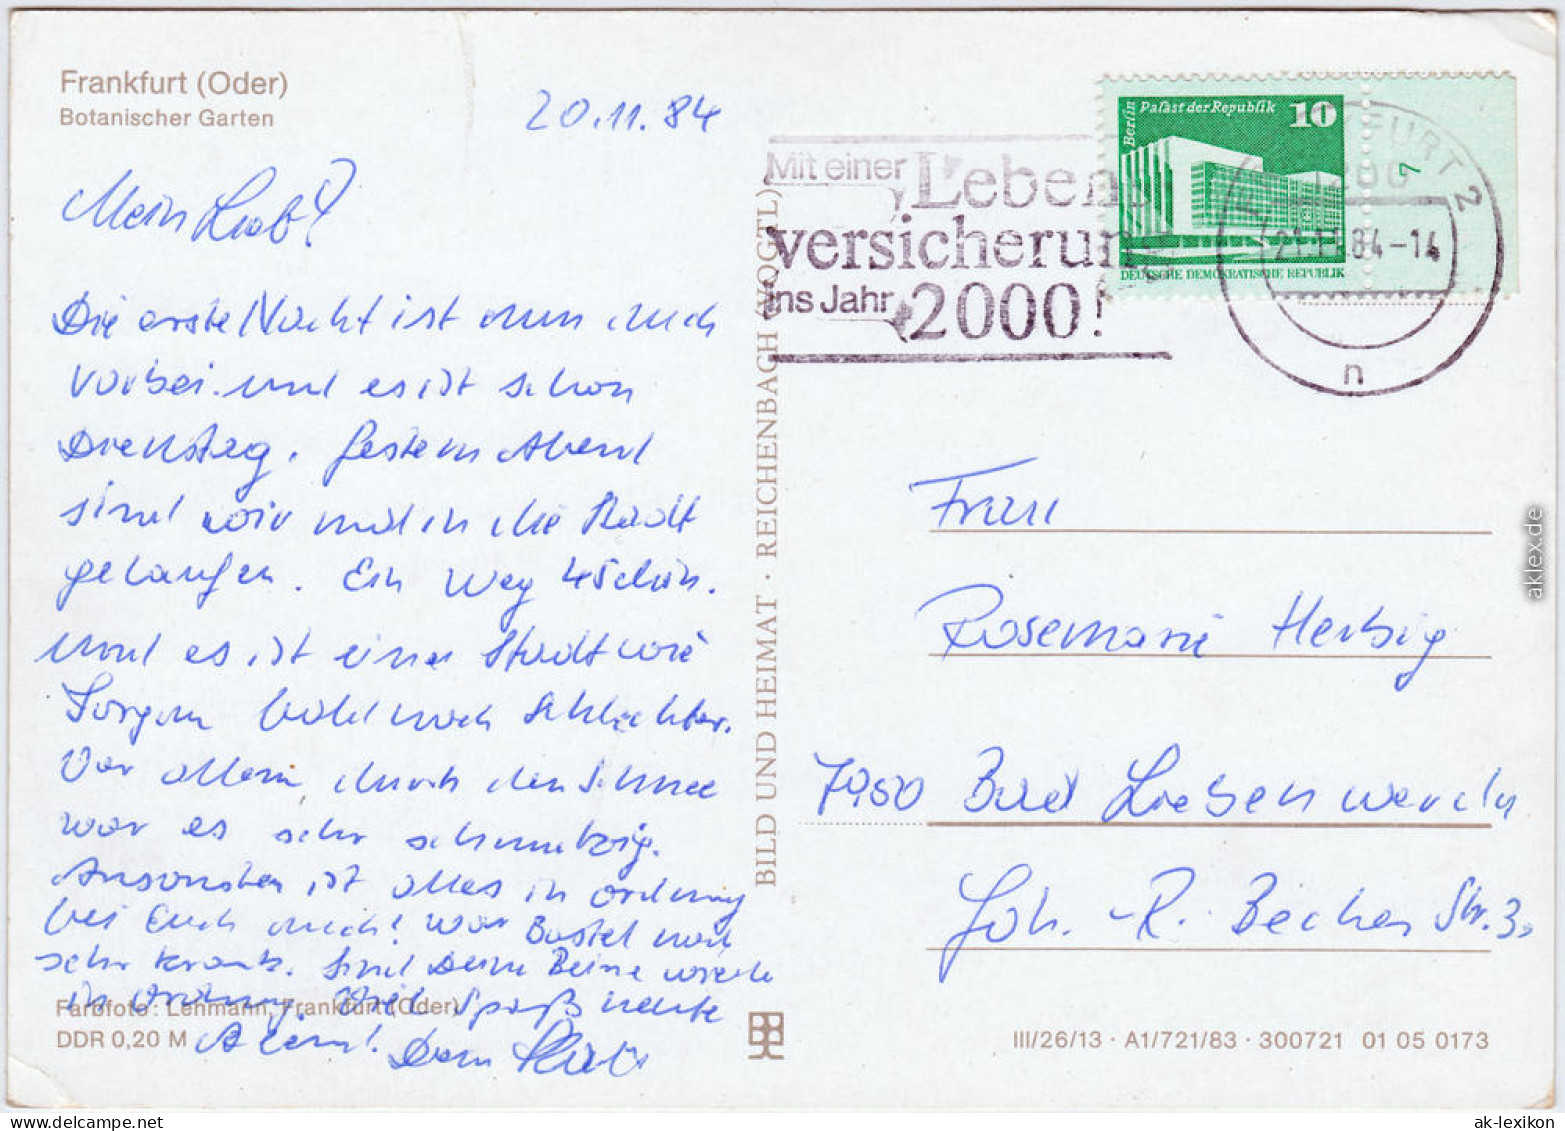 Frankfurt (Oder)
Botanischer Garten
20.11.84
Mein Lieb!
Die erste Nacht ist nun auch
vorbei und es ist schon
Dienstag. Gestern Abend
sind wir mal in die Stadt
gelaufen. Ein Weg 45
und es ist eine Stadt wie
Torgau bald noch schlechter.
Vor allem, durch den Schnee
war es sehr schmutzig.
Ansonsten ist alles in ordnung
bei Euch auch? War Bastel noch
sehr krank. Sind Deine Beine wieder
in Ordnung. Viel Spaß heute
Abend! Dein
Farbfoto: Lehmann, Frankfurt (Oder)
DDR 0,20 M
BILD UND HEIMAT · REICHENBACH (VOGTL)
Mit einer Lebens
versicherun
ins Jahr 2000!
Berlin Palast der Republik 10
DEUTSCHE DEMOKRATISCHE REPUBLIK
7
FURT 2
1200
21.11.84-14
n
Frau
Rosemarie Herbig
7950 Bad Liebenwerda
Joh. R. Becher Str. 3
III/26/13 · A1/721/83 · 300721 01 05 0173
aklex.de
ak-lexikon